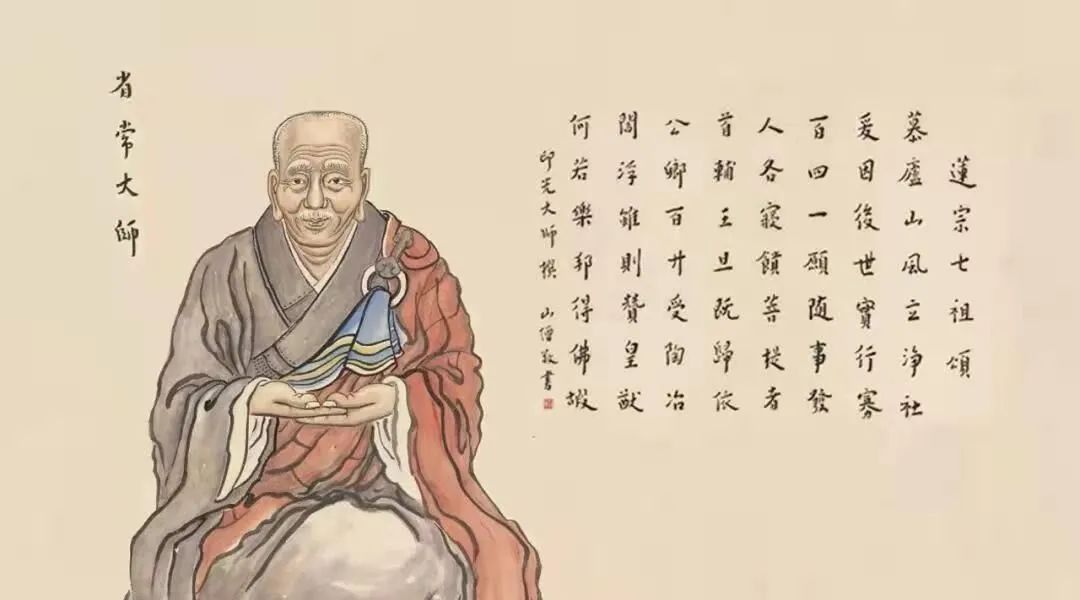 蓮宗七祖頌
慕廬山風立净社
爰因後世實行寡
百四一願随事發
人各寢饋菩提者
首輔王旦既歸依
公卿百廿受陶冶
閻浮雖則贊皇猷
何若樂邦得佛嘏
印光大師撰 山僧敬書
省常大師